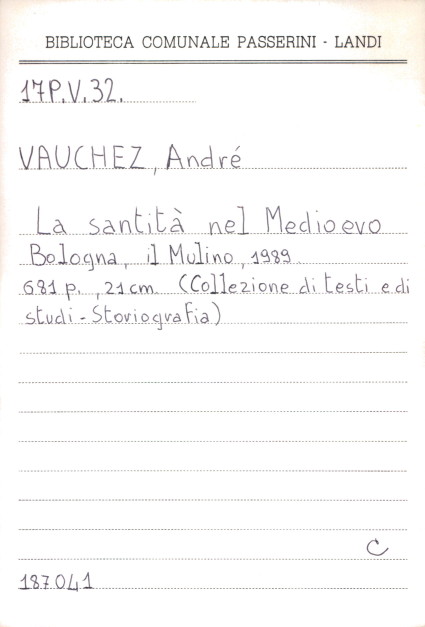 BIBLIOTECA COMUNALE PASSERINI - LANDI
17P.V.32.
VAUCHEZ, André
La santità nel Medioevo
Bologna, il Mulino, 1989.
681 p., 21 cm. (Collezione di testi e di
studi - Storiografia)
C
187.041